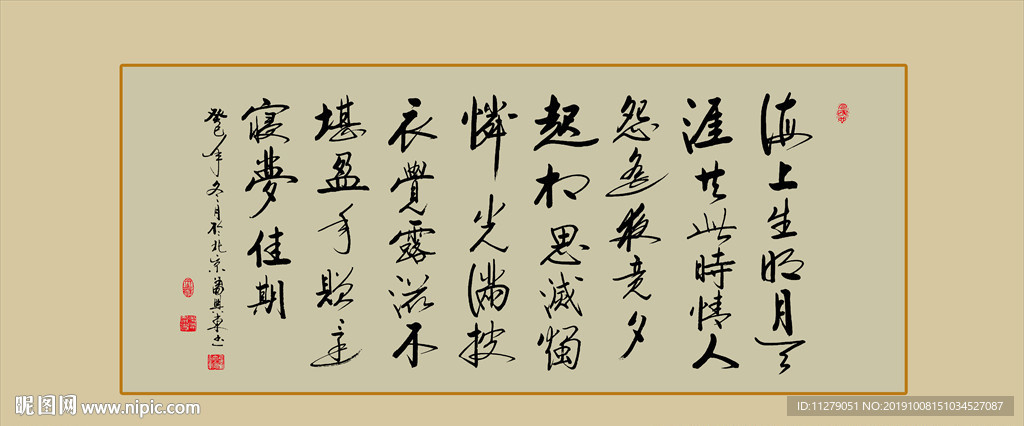 海上生明月天
涯共此時情人
怨遙夜竟夕
起相思滅燭
憐光滿披
衣覺露滋不
堪盈手贈還
寢夢佳期
癸巳年冬月於北京
昵图网 www.nipic.com
ID:11279051 NO:20191008151034527087